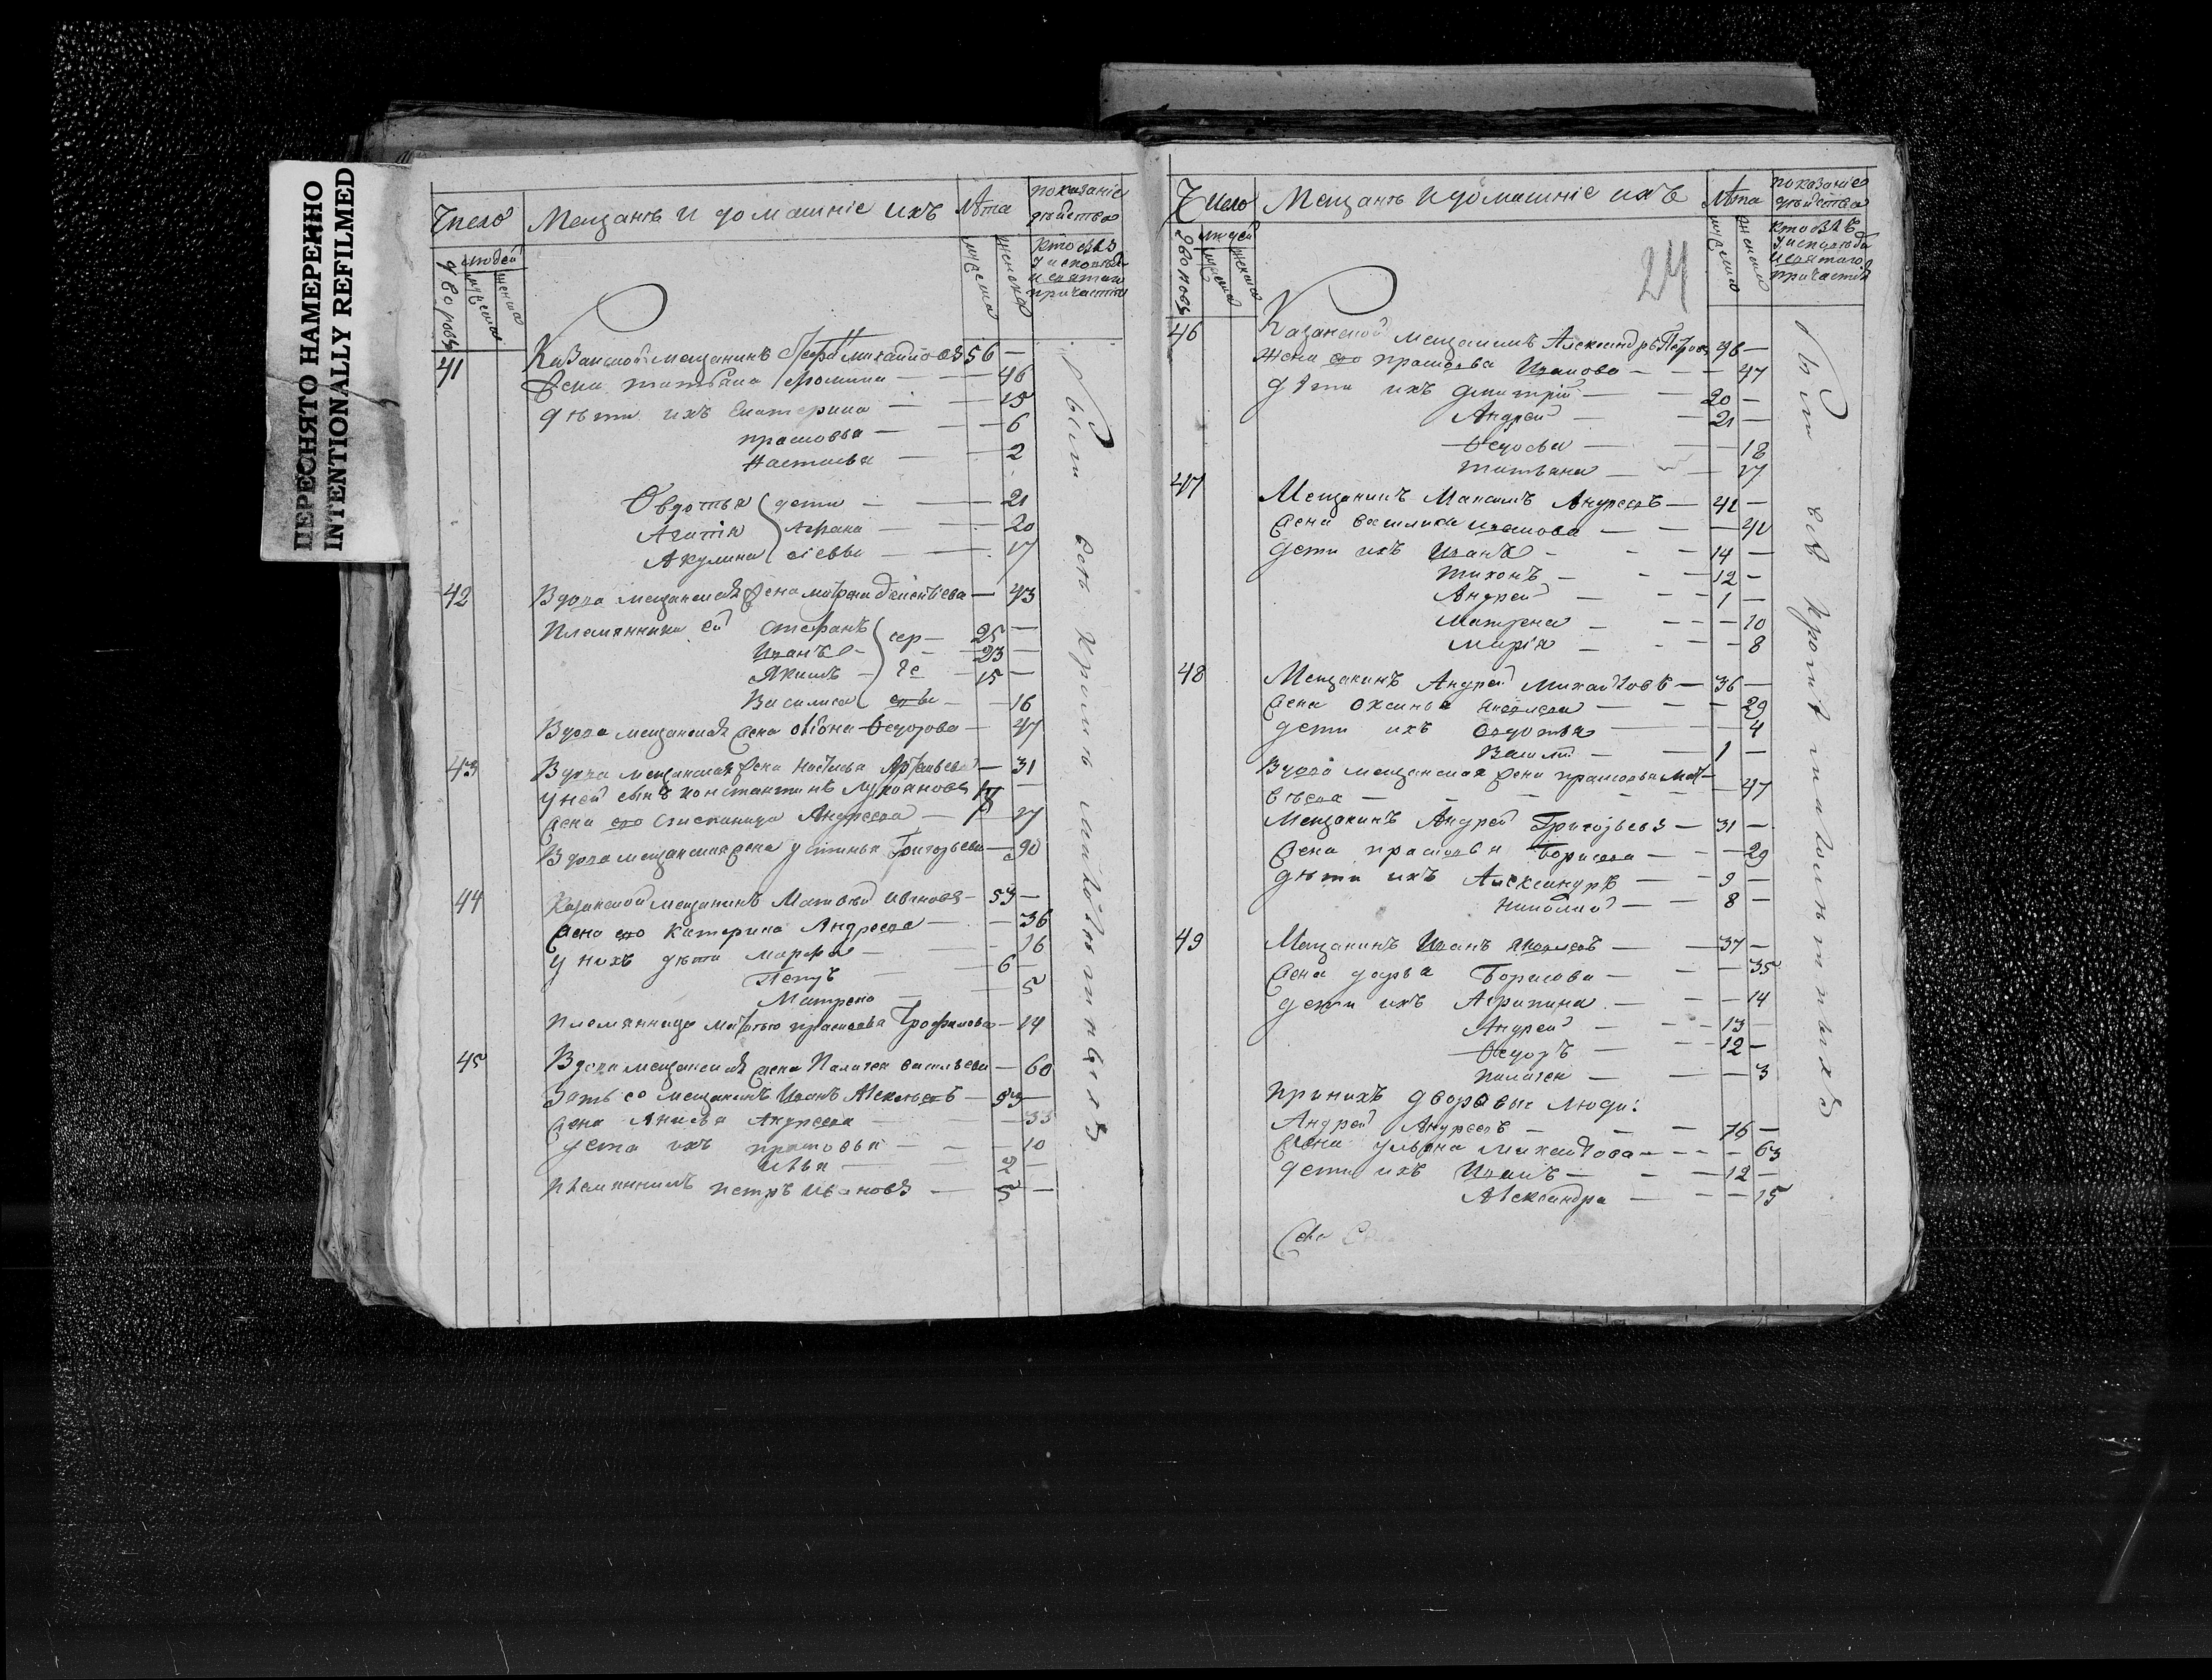 ПЕРЕСНЯТО НАМЕРЕННО
INTENTIONALLY REFILMED
Число
Мещанъ и домашніе ихъ
лѣта
показаніе
дѣйства
дворовъ
людей
мужеска
женска
мужеска
женска
кто былъ
у исповѣди
и святаго
причастія
41
Казанской мещанинъ Михайловъ 56 —
Жена татьяна Фомина — 46
дѣти ихъ Екатерина — 15
прасковья — 6
Настасья — 2
Овдотья дети — 21
Агапія — 20
Акулина — 17
42
Вдова мещанская жена матрена — 43
Племянники ей Стефанъ сер — 25 —
Иванъ — 23 —
Якимъ ге — 15 —
Василиса евы — 16
Вдова мещанская жена Ѳедорова — 47
43
Вдова мещанская жена настасья — 31
у ней сынъ константинъ Лукояновъ —
Жена его Степанида Андреева — 27
Вдова мещанская жена устинья Григорьева — 90
44
Казанской мещанинъ Матвей Ивановъ — 53 —
Жена его Катерина Андреева — 36
у нихъ дѣти марфа — 16
Петръ — 6 —
Матрена — 5
племянница прасковья Трофимова — 14
45
Вдова мещанская жена Палагея васильева — 60
Зять ее мещанинъ Иванъ Алексеевъ — 33 —
Жена Анисья Андреева — 33
дети ихъ прасковья — 10
илья — 2 —
племянникъ петръ Ивановъ — 5 —
были всѣ кромѣ малолѣтныхъ
Число
Мещанъ и домашніе ихъ
лѣта
показаніе
дѣйства
дворовъ
людей
мужеска
женска
мужеска
женска
кто былъ
у исповѣди
и святаго
причастія
24
46
Казанской мещанинъ Александръ Петровъ 48 —
жена его прасковья Иванова — 47
дѣти ихъ дмитрій — 20 —
Андрей — 21 —
Ѳедосья — 18
татьяна — 17
47
Мещанинъ Максимъ Андреевъ — 42 —
Жена василиса иванова — 40
дети ихъ Иванъ — 14 —
тихонъ — 12 —
Андрей — 1 —
Матрена — 10
Марія — 8
48
Мещанинъ Андрей Михайловъ — 36 —
Жена Оксинья яковлева — 29
дети ихъ овдотья — 4
Василій — 1 —
Вдова мещанская жена прасковья Мат-
вѣева — 47
Мещанинъ Андрей Григорьевъ — 31 —
Жена прасковья Борисова — 29
дѣти ихъ Александръ — 9 —
николай — 8 —
49
Мещанинъ Иванъ яковлевъ — 37 —
Жена дарья Борисова — 35
дети ихъ Агрипина — 14
Андрей — 13 —
Ѳедоръ — 12 —
палагея — 3
при нихъ дворовые люди:
Андрей Андреевъ — 76 —
Жена ульяна Михайлова — 63
дети ихъ Иванъ — 12 —
Александра — 15
были всѣ кромѣ малолѣтныхъ